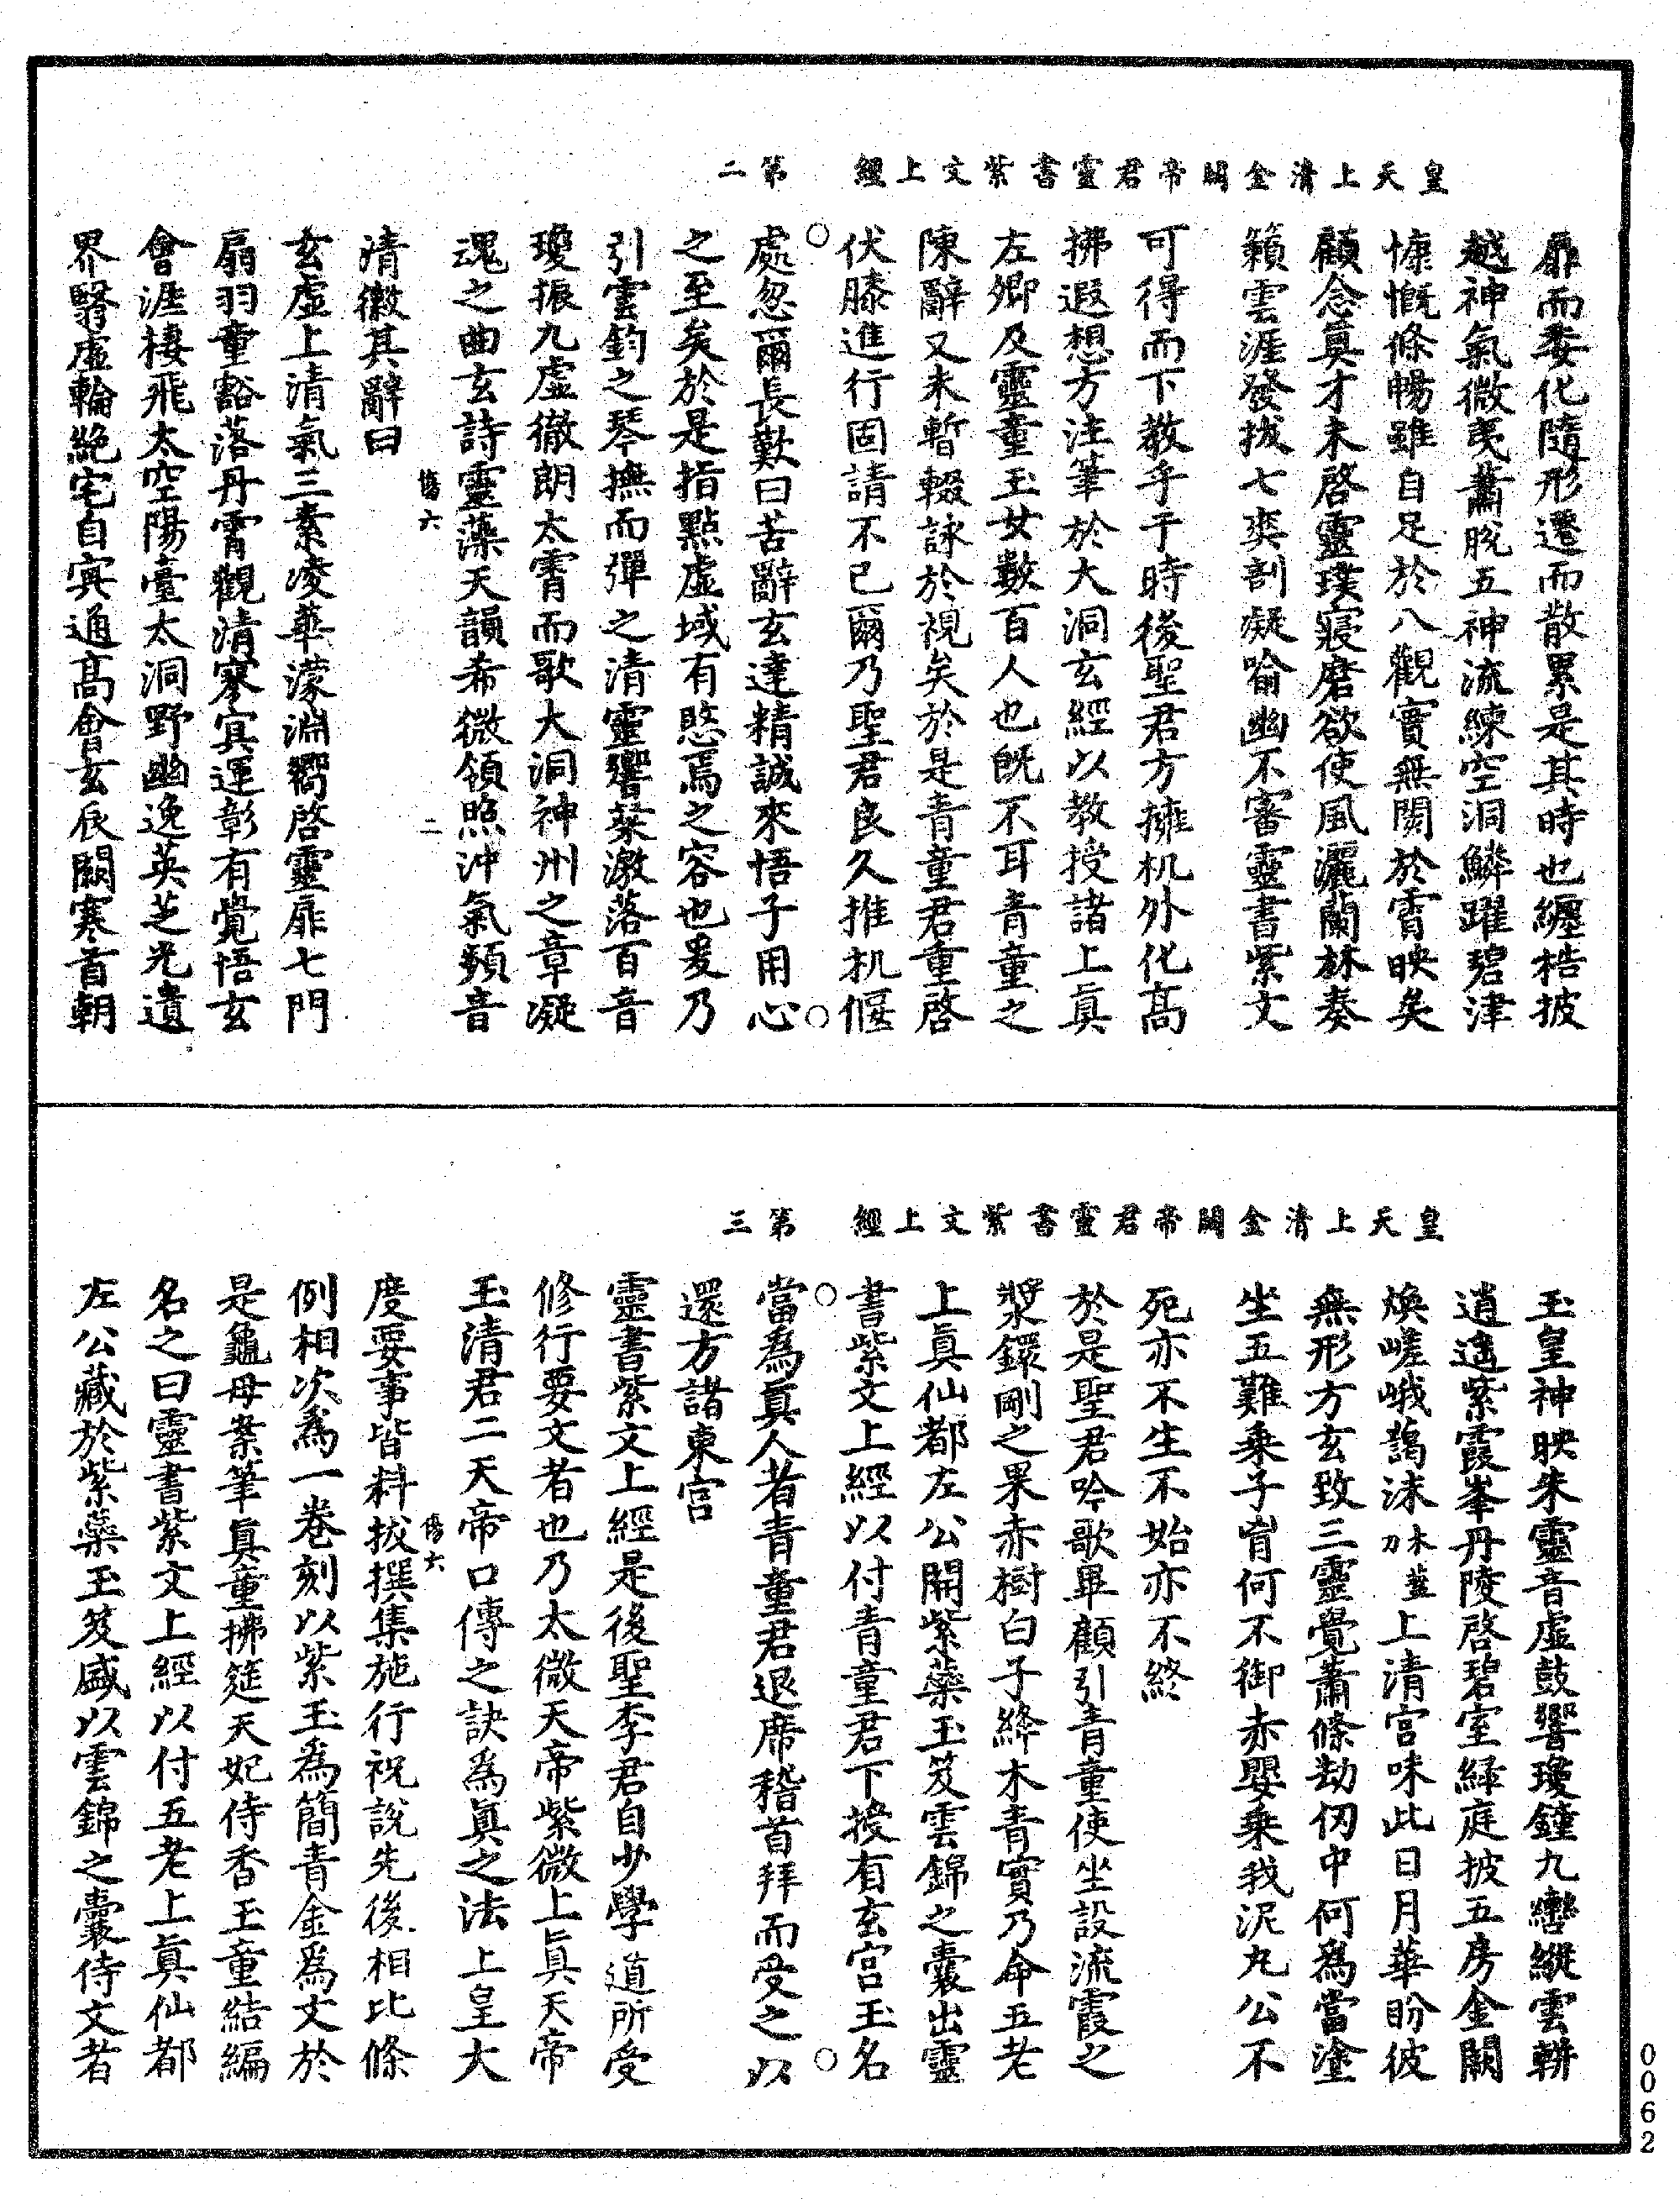 皇天上清金闕帝君靈書紫文上經　第二
扉而委化隨形遷而散累是其時也纏梏披
越神氣微夷蕭脫五神流練空洞鱗躍碧津
慷慨條暢雖自足於八觀實無闕於霄映矣
顧念眞才未啓靈璞寢磨欲使風灑蘭林奏
籟雲涯發拔七爽剖凝喻幽不審靈書紫文
可得而下教乎于時後聖君方擁机外化高
拂遐想方注筆於大洞玄經以教授諸上眞
左卿及靈童玉女數百人也旣不耳青童之
陳辭又未暫輟詠於視矣於是青童君重啓
伏膝進行固請不已爾乃聖君良久推机偃
處忽爾長歎曰苦辭玄達精誠來悟子用心
之至矣於是指點虛域有愍焉之容也爰乃
引雲鈞之琴撫而彈之清靈響粲激落百音
瓊振九虛徹朗太霄而歌大洞神州之章凝
魂之曲玄詩靈藻天韻希微領照沖氣頻音
傷六　二
清徹其辭曰
玄虛上清氣三素凌華濛淵嚮啓靈扉七門
扇羽童豁落丹霄觀清寥寘運彰有覺悟玄
會涯棲飛太空陽臺太洞野幽逸英芝光遺
界翳虛輪絶宅自寘通高會玄辰闕寒首朝
皇天上清金闕帝君靈書紫文上經　第三
玉皇神映朱靈音虛鼓響瓊鐘九轡縱雲軿
逍遙紫霞峯丹陵啓碧室綠庭披五房金闕
煥嵯峨藹沫木蓋刀上清宫味此日月華盼彼
無形方玄致三靈覺蕭條劫仞中何爲當塗
坐五難乗子肓何不御赤嬰乗我泥丸公不
死亦不生不始亦不終
於是聖君吟歌畢顧引青童使坐設流霞之
漿鐶剛之果赤樹白子絳木青實乃命五老
上眞仙都左公開紫蘂玉笈雲錦之囊出靈
書紫文上經以付青童君下授有玄宫玉名
當為眞人者青童君退席稽首拜而受之以
還方諸東宫
靈書紫文上經是後聖李君自少學道所受
修行要文者也乃太微天帝紫微上眞天帝
玉清君二天帝口傳之訣爲眞之法上皇大
傷六
度要事皆料拔撰集施行祝說先後相比條
例相次為一卷刻以紫玉爲簡青金爲文於
是龜母案筆眞童拂筵天妃侍香玉童結編
名之曰靈書紫文上經以付五老上眞仙都
左公藏於紫蘂玉笈盛以雲錦之囊侍文者
0062